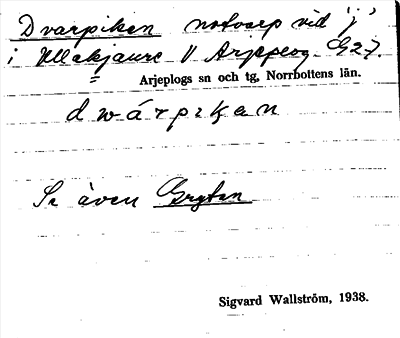 Dvarpiken notvarp vid 'j'
i Ullekjaure V Arjeplog G27.
Arjeplogs sn och tg, Norrbottens län.
dwárpikan
Se även Grytan
Sigvard Wallström, 1938.